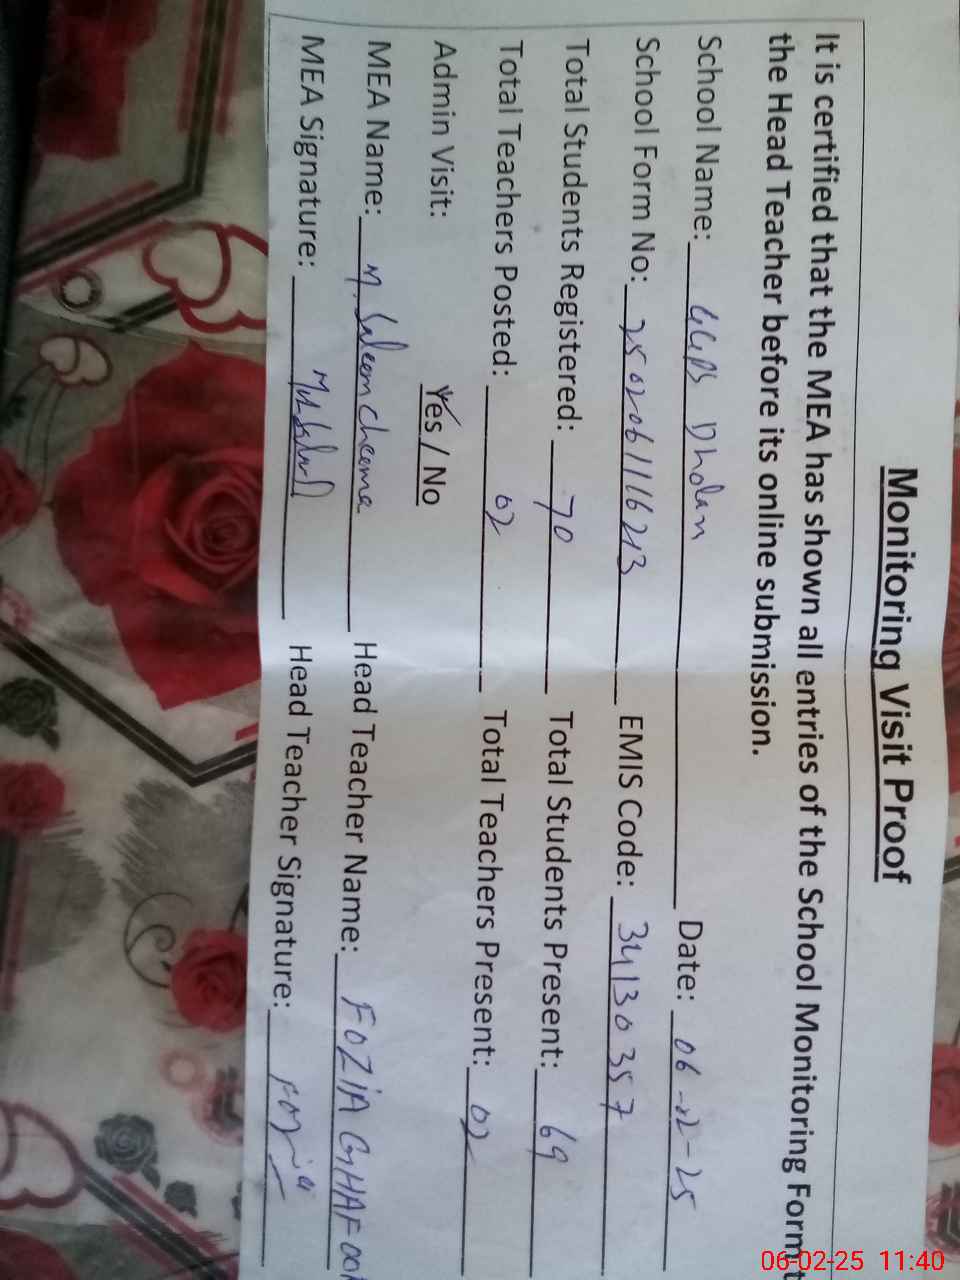 Monitoring Visit Proof
It is certified that the MEA has shown all entries of the School Monitoring Form t
the Head Teacher before its online submission.
School Name: GGPS Dholan Date: 06-02-25
School Form No: 2502061116213 EMIS Code: 34130357
Total Students Registered: 70 Total Students Present: 69
Total Teachers Posted: 02 Total Teachers Present: 02
Admin Visit: Yes / No
MEA Name: M. Saleem Cheema Head Teacher Name: FOZIA GHAFOOR
MEA Signature: Head Teacher Signature: Fozia
06-02-25 11:40